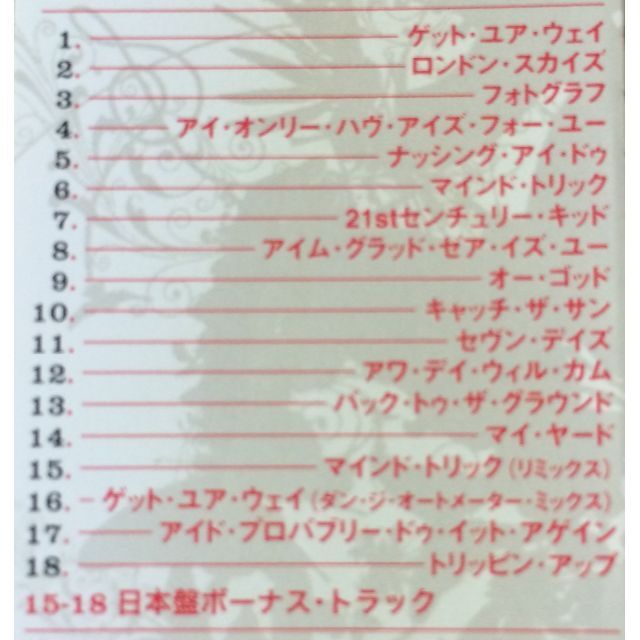 1. ゲット・ユア・ウェイ
2. ロンドン・スカイズ
3. フォトグラフ
4. アイ・オンリー・ハヴ・アイズ・フォー・ユー
5. ナッシング・アイ・ドゥ
6. マインド・トリック
7. 21stセンチュリー・キッド
8. アイム・グラッド・ゼア・イズ・ユー
9. オー・ゴッド
10. キャッチ・ザ・サン
11. セヴン・デイズ
12. アワ・デイ・ウィル・カム
13. バック・トゥ・ザ・グラウンド
14. マイ・ヤード
15. マインド・トリック(リミックス)
16. ゲット・ユア・ウェイ(ダン・ジ・オートメーター・ミックス)
17. アイド・プロバブリー・ドゥ・イット・アゲイン
18. トリッピン・アップ
15-18 日本盤ボーナス・トラック